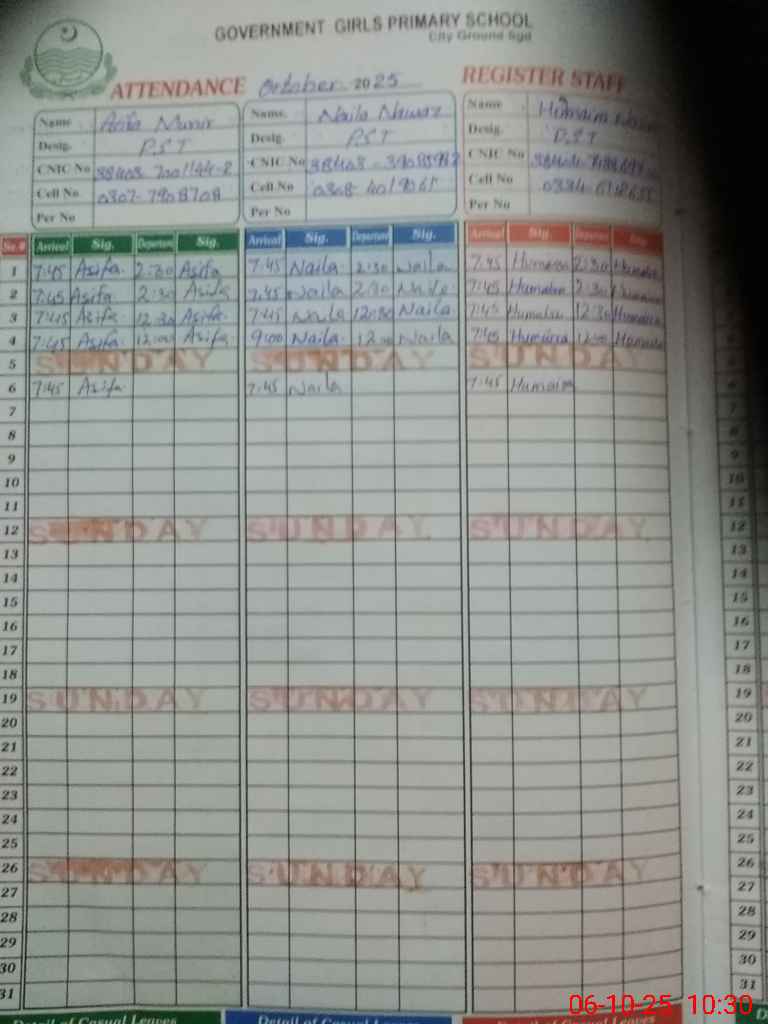 GOVERNMENT GIRLS PRIMARY SCHOOL
City Ground Sgd
ATTENDANCE October 2025 REGISTER STAFF
Name Asifa Munir Name Naila Nawaz Name Humaira
Desig. P.S.T Desig. P.S.T Desig. P.S.T
CNIC No CNIC No CNIC No
Cell No 0307-7908708 Cell No Cell No
Per No Per No Per No
Sr.# Arrival Sig. Departure Sig. Arrival Sig. Departure Sig. Arrival Sig. Departure Sig.
1 7:45 Asifa 2:30 Asifa 7:45 Naila 2:30 Naila 7:45 Humaira 2:30 Humaira
2 7:45 Asifa 2:30 Asifa 7:45 Naila 2:30 Naila 7:45 Humaira 2:30 Humaira
3 7:45 Asifa 12:30 Asifa 7:45 Naila 12:30 Naila 7:45 Humaira 12:30 Humaira
4 7:45 Asifa 12:00 Asifa 9:00 Naila 12:00 Naila 7:45 Humaira 12:00 Humaira
5 SUNDAY SUNDAY SUNDAY 5
6 7:45 Asifa 7:45 Naila 7:45 Humaira 6
7 7
8 8
9 9
10 10
11 11
12 SUNDAY SUNDAY SUNDAY 12
13 13
14 14
15 15
16 16
17 17
18 18
19 SUNDAY SUNDAY SUNDAY 19
20 20
21 21
22 22
23 23
24 24
25 25
26 SUNDAY SUNDAY SUNDAY 26
27 27
28 28
29 29
30 30
31 31
Detail of Casual Leaves Detail of Casual Leaves Detail of Casual Leaves
06-10-25 10:30